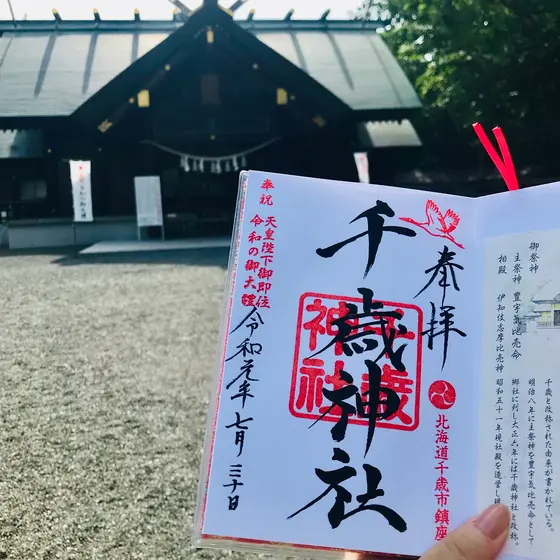 奉拝
北海道千歳市鎮座
千歳神社
千歳
神社
奉祝 天皇陛下御即位
令和の御大禮
令和元年七月三十日
御祭神
主祭神 豊宇気比売命
相殿 伊知伎志摩比売神
千歳と改称された由来が書かれている。
明治八年に主祭神を豊宇気比売命として
郷社に列し大正六年には千歳神社と改称。
昭和五十一年現社殿を造営し